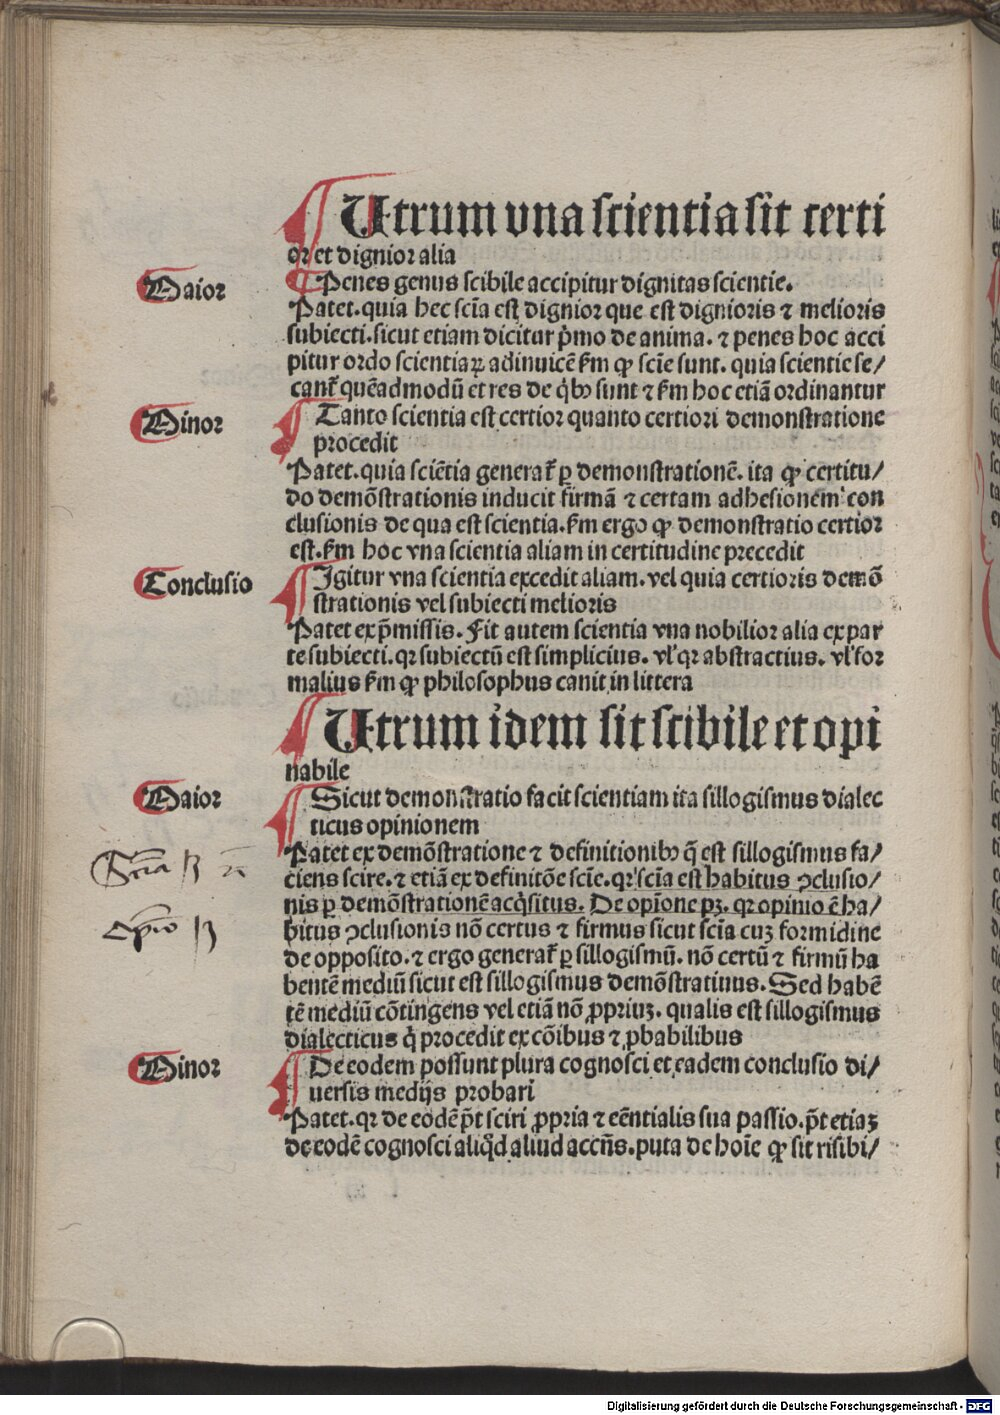 Utrum vna scientia sit certi
or et dignior alia
Maior
Penes genus scibile accipitur dignitas scientie.
Patet. quia hec scīa est dignior que est dignioris ⁊ melioris
subiecti. sicut etiam dicitur p̄mo de anima. ⁊ penes hoc acci
pitur ordo scientiaꝝ adinuicē ẜm ꝙ scīe sunt. quia scientie se/
cant᷑ quēadmodū et res de q̇bꝰ sunt ⁊ ẜm hoc etiā ordinantur
Minor
Tanto scientia est certior quanto certiori demonstratione
procedit
Patet. quia sciētia generat᷑ ꝑ demonstrationē. ita ꝙ certitu/
do demōstrationis inducit firmā ⁊ certam adhesionem con
clusionis de qua est scientia. ẜm ergo ꝙ demonstratio certior
est. ẜm hoc vna scientia aliam in certitudine precedit
Conclusio
Igitur vna scientia excedit aliam. vel quia certioris demō
strationis vel subiecti melioris
Patet ex p̄missis. Fit autem scientia vna nobilior alia ex par
te subiecti. qꝛ subiectū est simplicius. vl' qꝛ abstractius. vl' for
malius ẜm ꝙ philosophus canit in littera
Utrum idem sit scibile et opi
nabile
Maior
Sicut demonstratio facit scientiam ita sillogismus dialec
ticus opinionem
Patet ex demōstratione ⁊ definitionibꝰ q̄ est sillogismus fa/
ciens scire. ⁊ etiā ex definitōe scīe. qꝛ scīa est habitus ꝯclusio/
nis ꝑ demōstrationē acq̇situs. De opīone pꝫ. qꝛ opinio ē ha/
bitus ꝯclusionis nō certus ⁊ firmus sicut scīa cuꝫ formidine
de opposito. ⁊ ergo generat᷑ ꝑ sillogismū. nō certū ⁊ firmū ha
bentē mediū sicut est sillogismus demōstratiuus. Sed habē
tē mediū cōtingens vel etiā nō ꝓpriuꝫ. qualis est sillogismus
dialecticus q̇ procedit ex cōibus ⁊ ꝓbabilibus
Minor
De eodem possunt plura cognosci et eadem conclusio di/
uersis medijs probari
Patet. qꝛ de eodē p̄t sciri ꝓpria ⁊ eēntialis sua passio. p̄t etiaꝫ
de eodē cognosci aliq̇d aliud accn̄s. puta de hoīe ꝙ sit risibi/
Digitalisierung gefördert durch die Deutsche Forschungsgemeinschaft - DFG